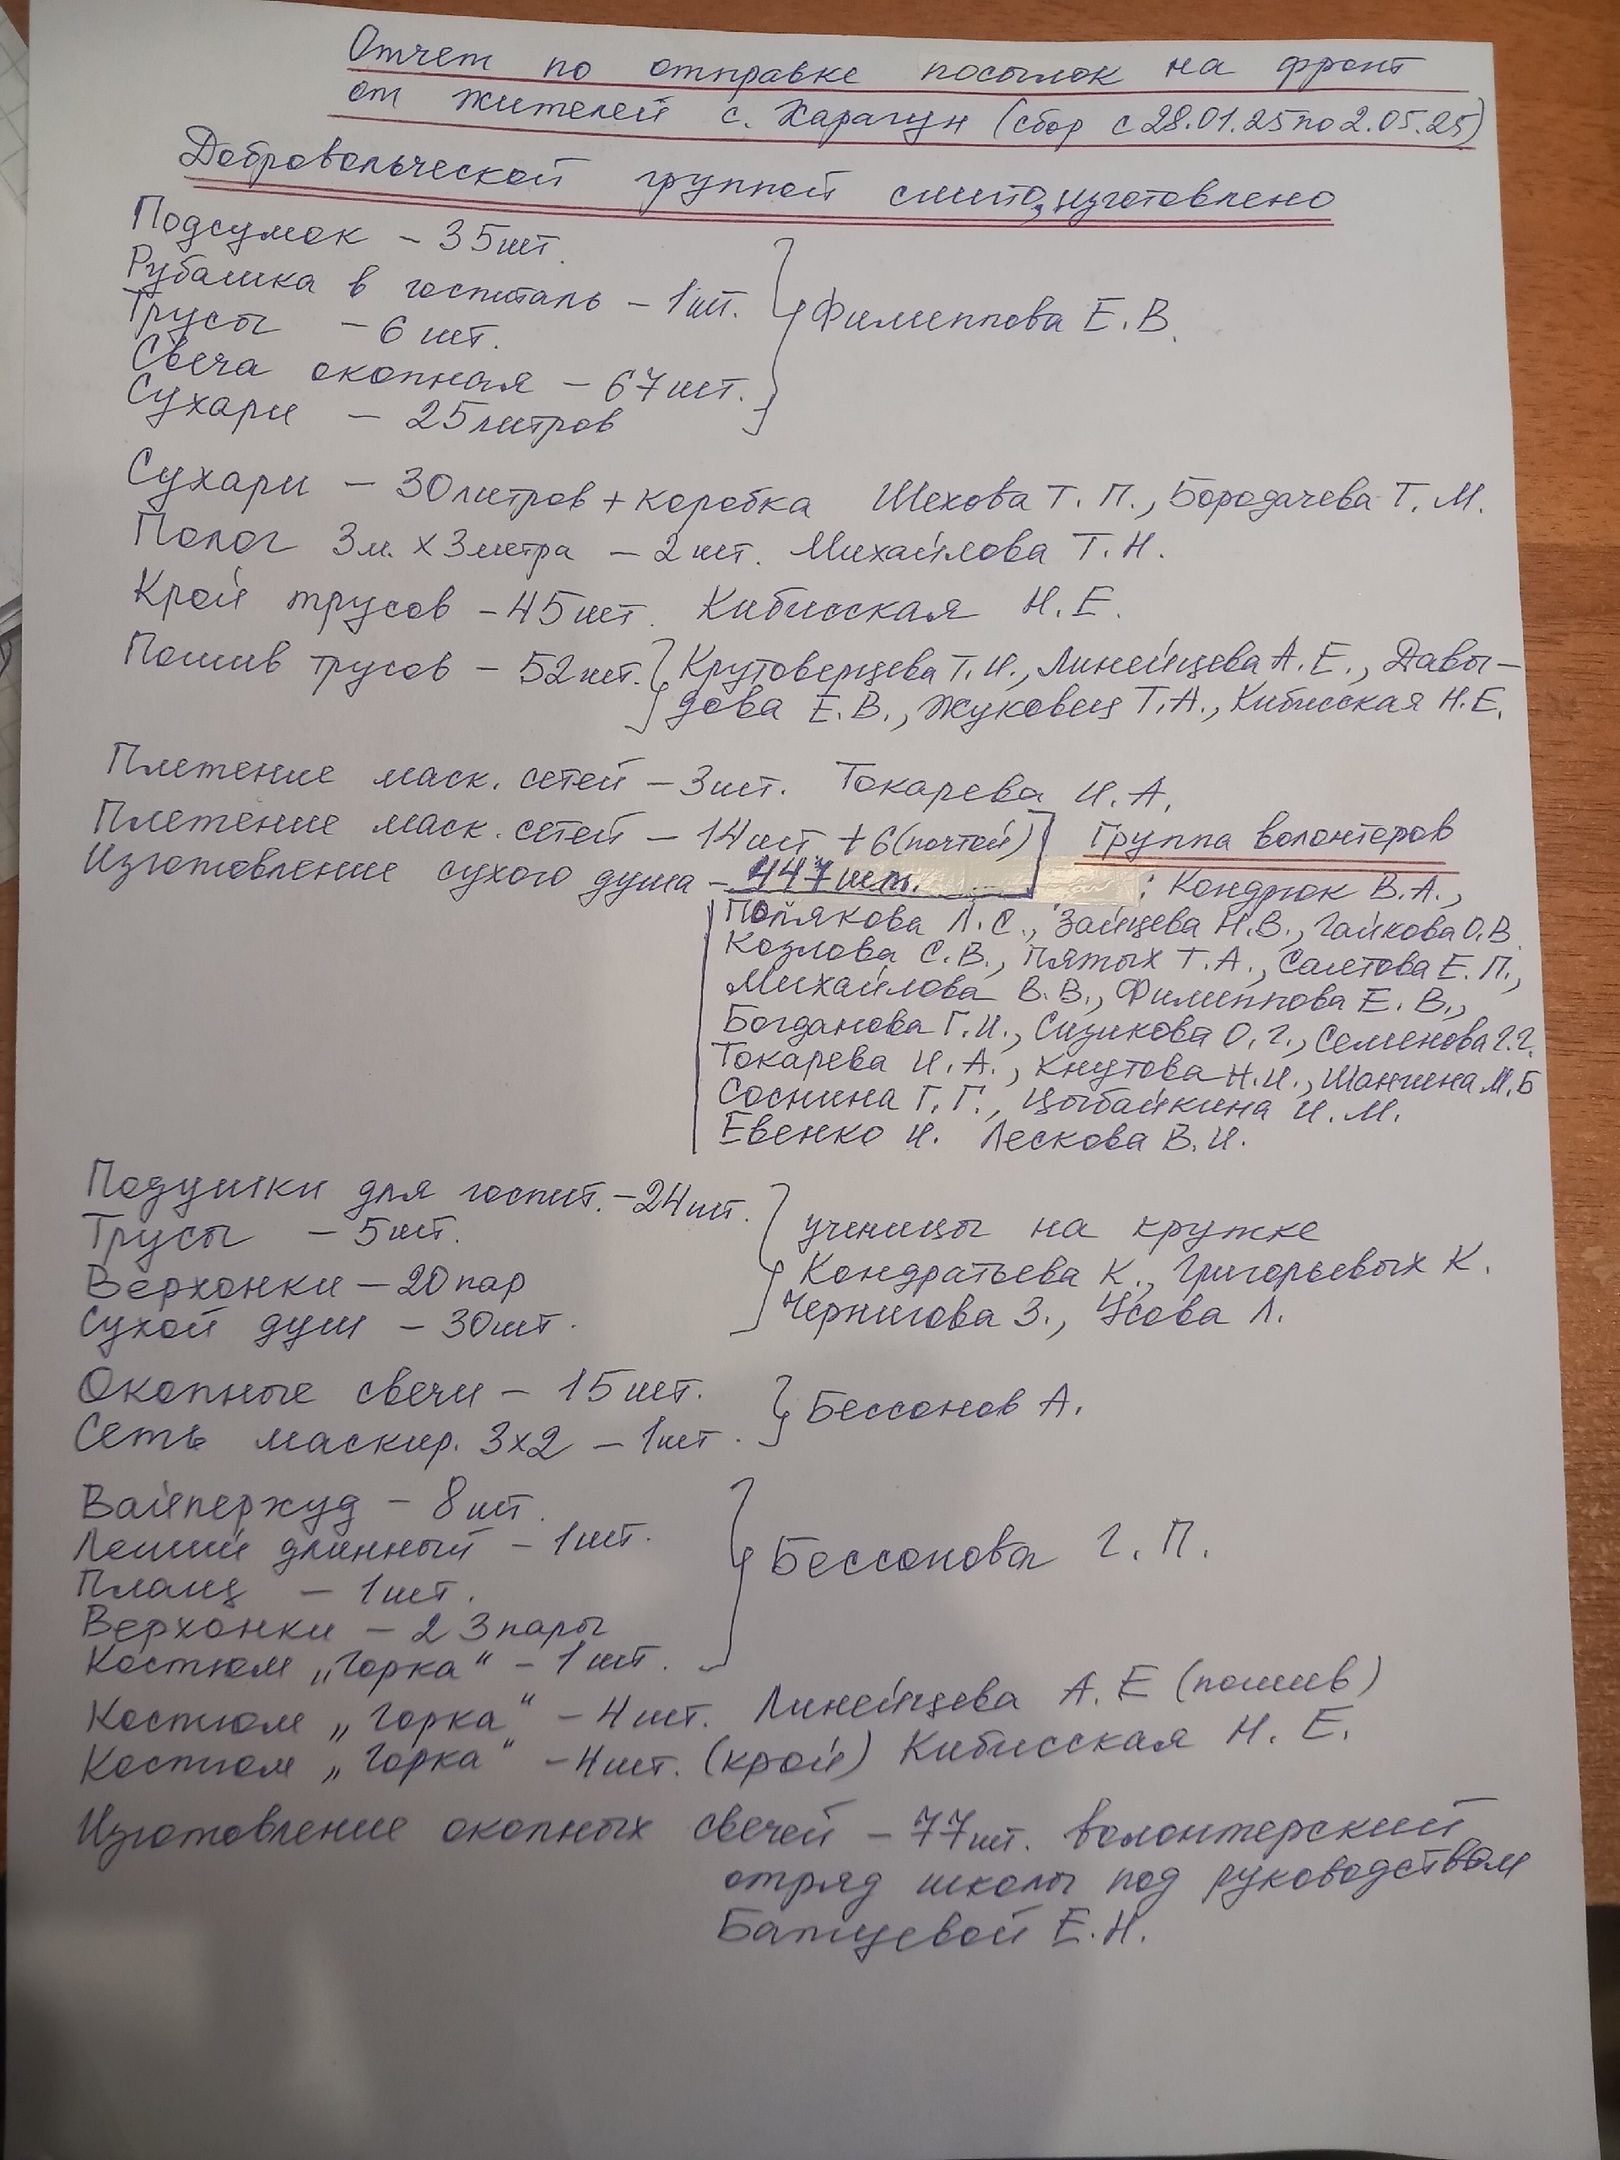 Отчет по отправке посылок на фронт
от жителей с. Харагун (сбор с 28.01.25 по 2.05.25)
Добровольческой группой сшито, изготовлено
Подсумок – 35 шт.
Рубашка в госпиталь – 1 шт.
Трусы – 6 шт.
Свеча окопная – 67 шт.
Сухари – 25 литров
Филиппова Е.В.
Сухари – 30 литров + коробка Шехова Т. П., Бородачева Т. М.
Полог 3 м. х 3 метра – 2 шт. Михайлова Т. Н.
Крой трусов – 45 шт. Кибисская Н. Е.
Пошив трусов – 52 шт. Крутоверцева Т. И., Линейцева А. Е., Давы-
дова Е. В., Жуковец Т. А., Кибисская Н. Е.
Плетение маск. сетей – 3 шт. Токарева И. А.
Плетение маск. сетей – 14 шт + 6 (почтой) Группа волонтеров
Изготовление сухого душа – 447 шт. : Кондрюк В. А.,
Полякова Л. С., Зайцева Н. В., Гайкова О. В
Козлова С. В., Пятых Т. А., Саетова Е. П.,
Михайлова В. В., Филиппова Е. В.,
Богданова Г. И., Сизикова О. Г., Семенова Г. Г.
Токарева И. А., Кнутова Н. И., Шангина М. Б
Соснина Г. Г., Цыбайкина И. М.
Евенко И. Лескова В. И.
Подушки для госпит. – 24 шт.
Трусы – 5 шт.
Верхонки – 20 пар
Сухой душ – 30 шт.
ученицы на кружке
Кондратьева К., Григорьевых К.
Чернигова З., Усова Л.
Окопные свечи – 15 шт.
Сеть маскир. 3х2 – 1 шт.
Бессонов А.
Вайперхуд – 8 шт.
Леший длинный – 1 шт.
Плащ – 1 шт.
Верхонки – 23 пары
Костюм „Горка“ – 1 шт.
Бессонова Г. П.
Костюм „Горка“ – 4 шт. Линейцева А. Е (пошив)
Костюм „Горка“ – 4 шт. (крой) Кибисская Н. Е.
Изготовление окопных свечей – 77 шт. волонтерский
отряд школы под руководством
Батуевой Е. Н.